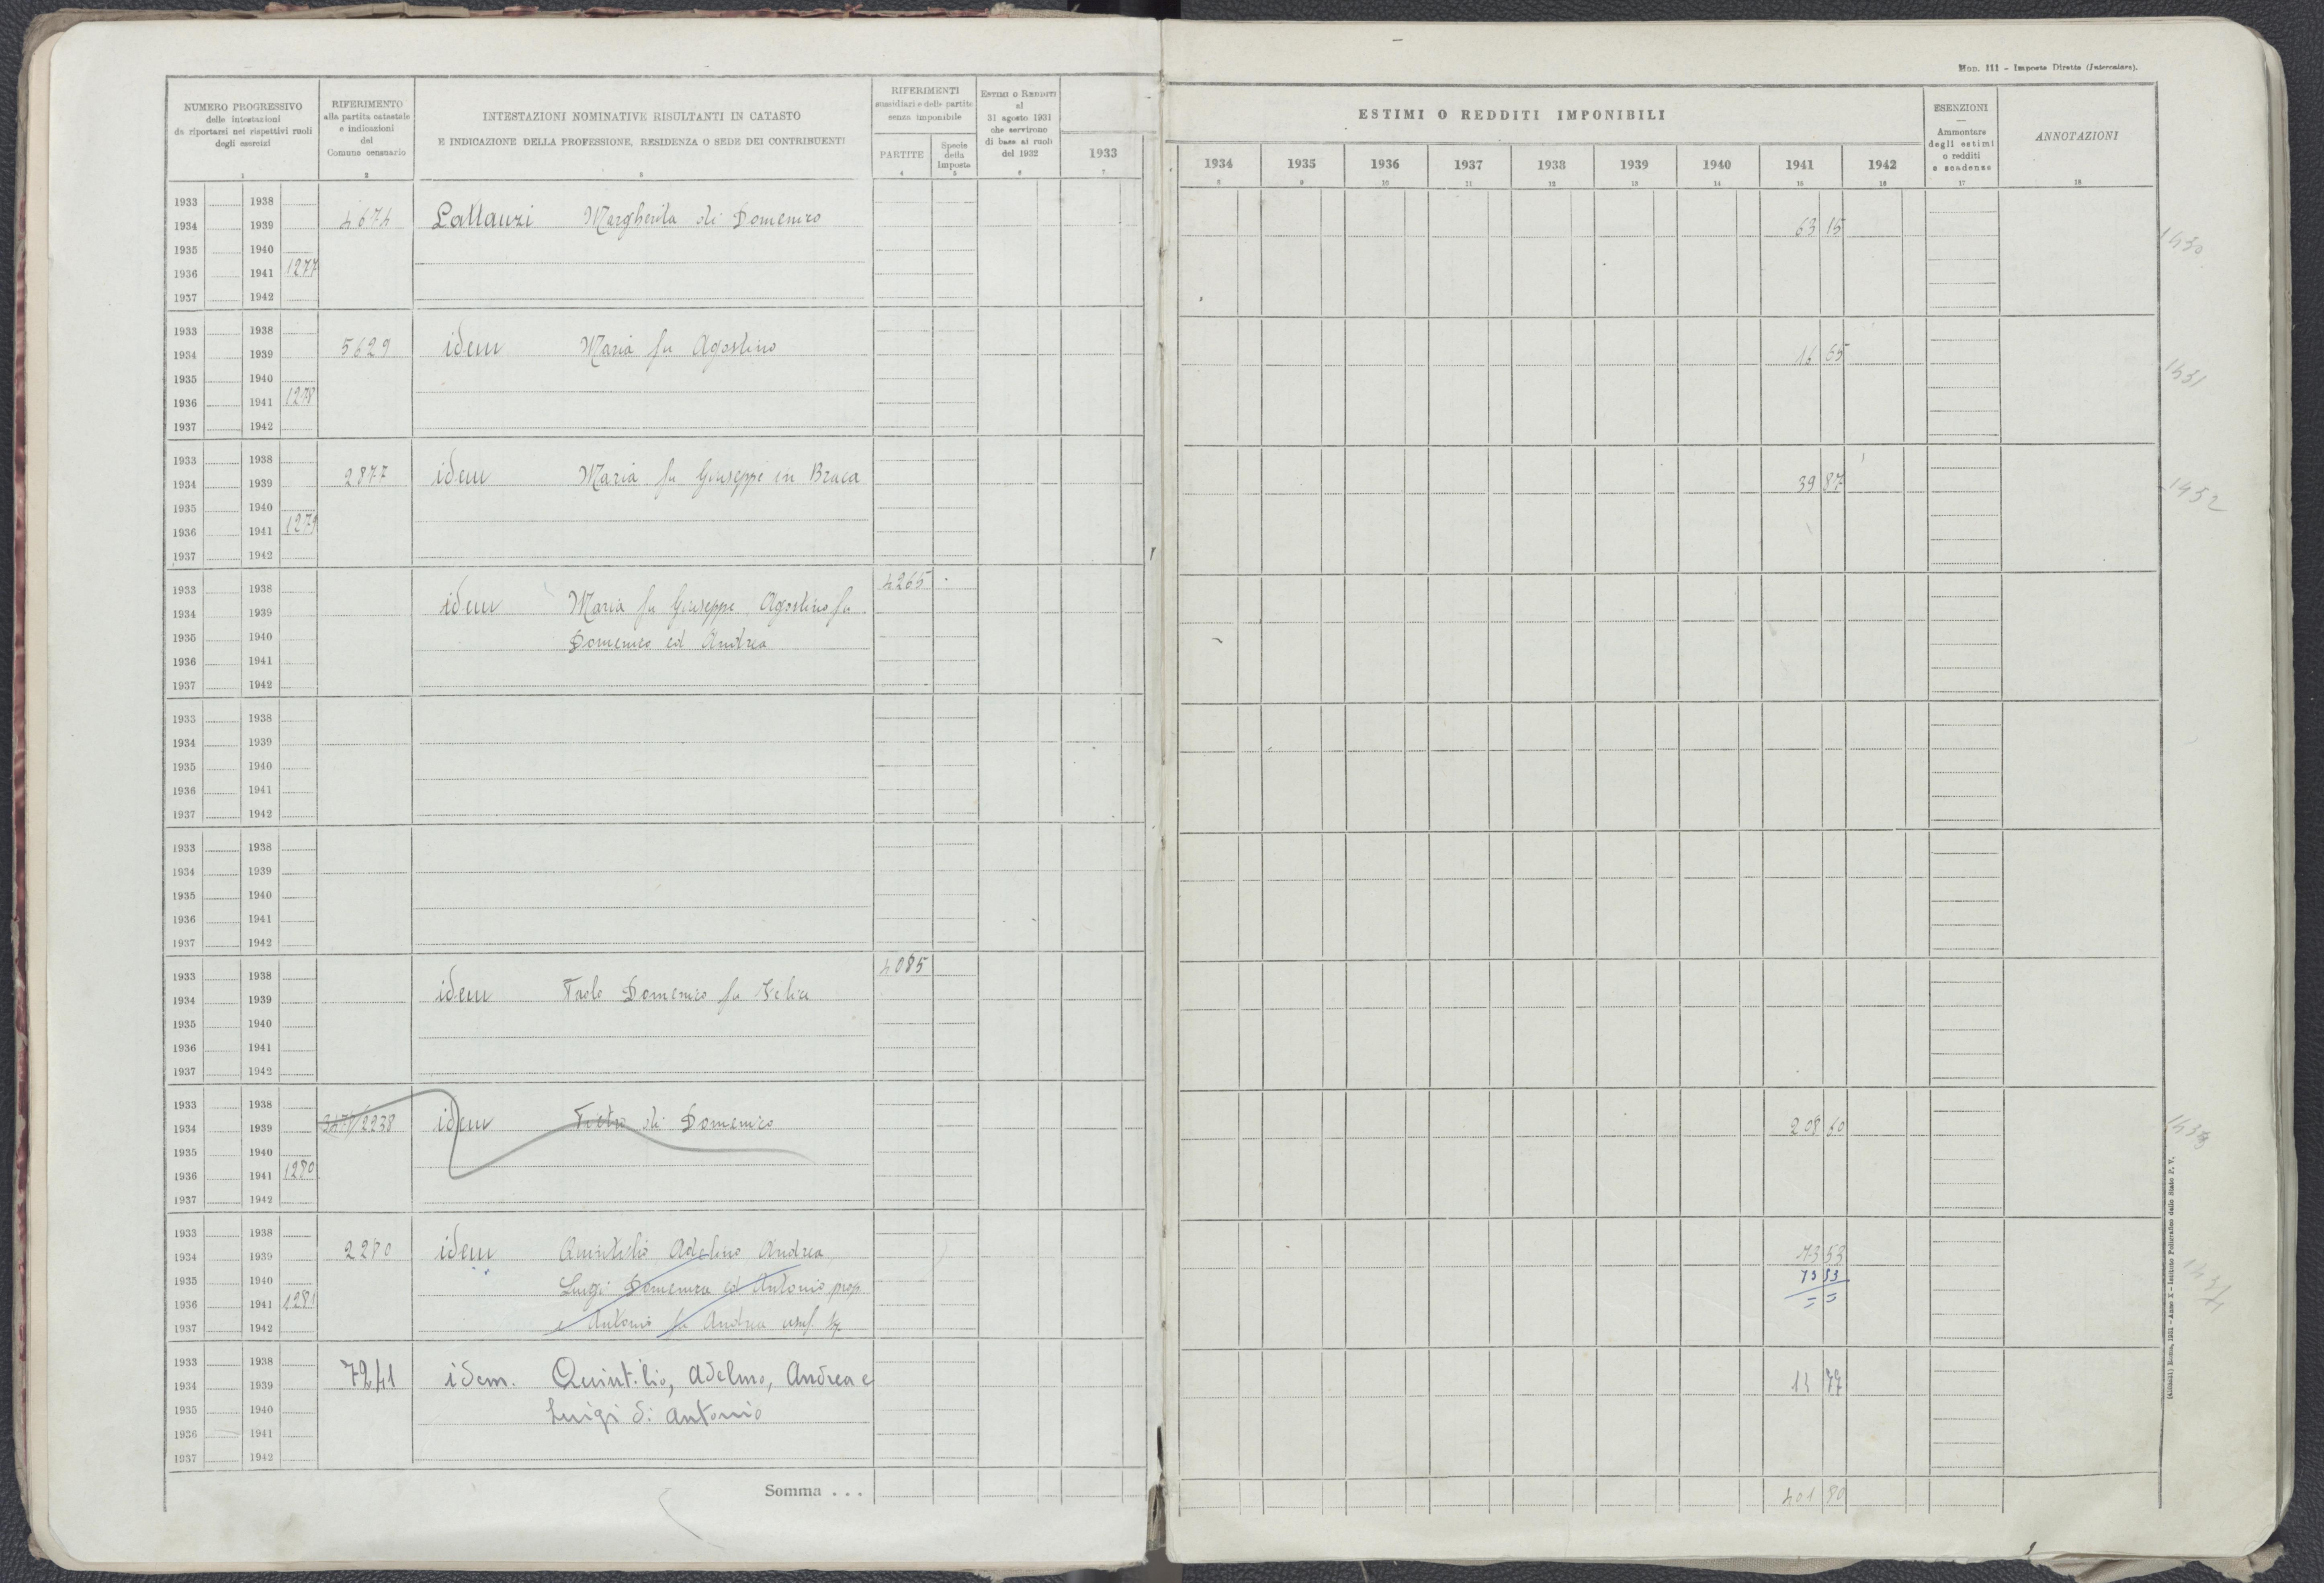 Mod. 111 - Imposte Dirette (Intercalare).
NUMERO PROGRESSIVO
delle intestazioni
da riportarsi nei rispettivi ruoli
degli esercizi
1
RIFERIMENTO
alla partita catastale
e indicazioni
del
Comune censuario
2
INTESTAZIONI NOMINATIVE RISULTANTI IN CATASTO
E INDICAZIONE DELLA PROFESSIONE, RESIDENZA O SEDE DEI CONTRIBUENTI
3
RIFERIMENTI
sussidiari e delle partite
senza imponibile
PARTITE
4
Specie
della
Imposta
5
ESTIMI O REDDITI
al
31 agosto 1931
che servirono
di base ai ruoli
del 1932
6
1933
7
ESTIMI O REDDITI IMPONIBILI
1934 1935 1936 1937 1938 1939 1940 1941 1942
8 9 10 11 12 13 14 15 16
ESENZIONI
—
Ammontare
degli estimi
o redditi
e scadenze
17
ANNOTAZIONI
18
1933 1938
1934 1939 4674 Lattanzi Margherita di Domenico 63 15 1430
1935 1940
1936 1941 1277
1937 1942
1933 1938
1934 1939 5629 idem Maria fu Agostino 16 65 1431
1935 1940
1936 1941 1278
1937 1942
1933 1938
1934 1939 2877 idem Maria fu Giuseppe in Braca 39 87 1432
1935 1940
1936 1941 1279
1937 1942
1933 1938 4265
1934 1939 idem Maria fu Giuseppe Agostino fu
1935 1940 Domenico ed Andrea
1936 1941
1937 1942
1933 1938
1934 1939
1935 1940
1936 1941
1937 1942
1933 1938
1934 1939
1935 1940
1936 1941
1937 1942
1933 1938 4085
1934 1939 idem Paolo Domenico fu Felice
1935 1940
1936 1941
1937 1942
1933 1938
1934 1939 /2238 idem Pietro di Domenico 208 60
1935 1940
1936 1941 1280
1937 1942
1933 1938
1934 1939 2280 idem Quintilio, Adelmo Andrea 73 53
1935 1940 Luigi Domenica ed Antonio prop 73 53
1936 1941 1281 e Antonio fu Andrea usuf. = =
1937 1942
1933 1938
1934 1939 7241 idem. Quintilio, Adelmo, Andrea e 13 77
1935 1940 Luigi di Antonio
1936 1941
1937 1942
Somma . . . 401 80
Roma, 1931 - Anno X - Istituto Poligrafico dello Stato P. V.